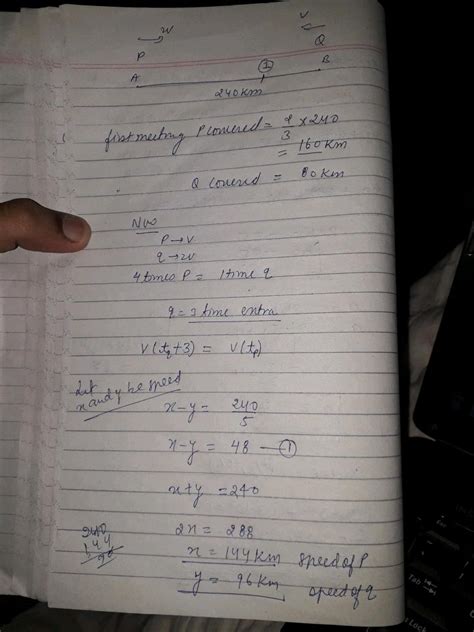 2V V
P Q
A ① B
240Km
first meeting P covered = 2/3 × 240
= 160 Km
Q covered = 80 Km
Now
P → V
q → 2V
4 times P = 1 time q
q = 3 time extra
V(tq+3) = V(tp)
Let
x and y be speed
x-y = 240/5
x-y = 48 — ①
x+y = 240
2x = 288
x = 144 Km speed of P
y = 96 Km speed of q
240
144
96